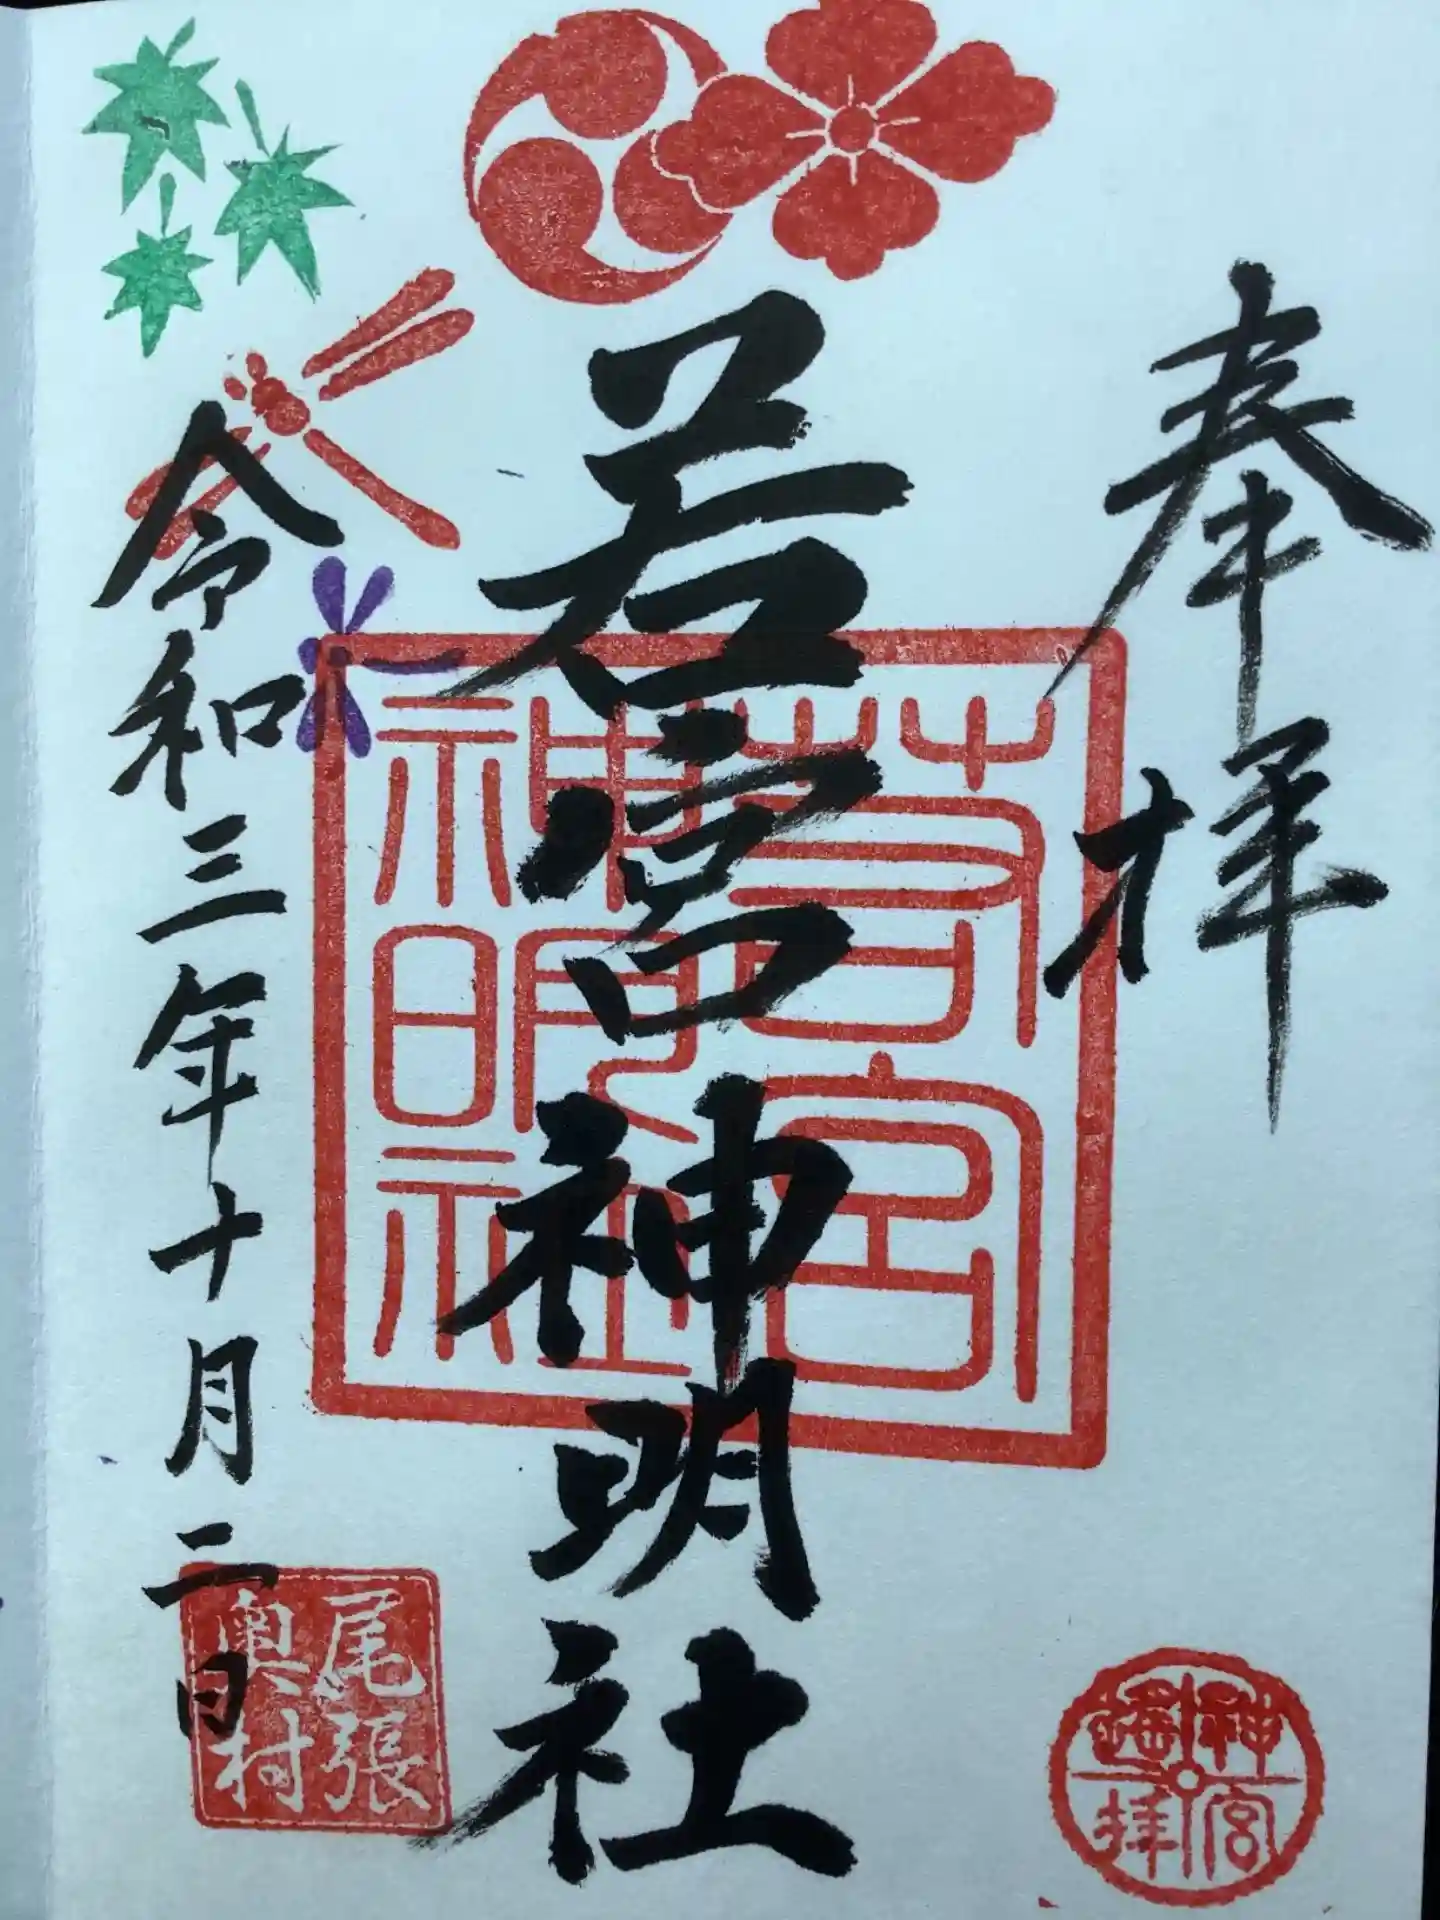 奉拝
若宮神明社
若宮
神明社
令和三年十月二日
尾張
奥村
神宮
遙拝